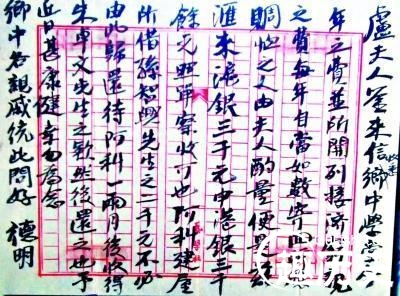 盧夫人鑒來信收悉鄉中學堂
年之費並所開列接濟親
之費每年自當如數寄回
賙恤之人由夫人酌量便是茲
滙來滬銀三千元申港銀三千
餘元照單察收可也阿科建屋
所借孫智興先生之一千元不必
由此歸還待阿科一兩月後收得
朱卓文先生之款然後還之也予
近日甚康健幸勿為念
鄉中各親戚統此問好 德明